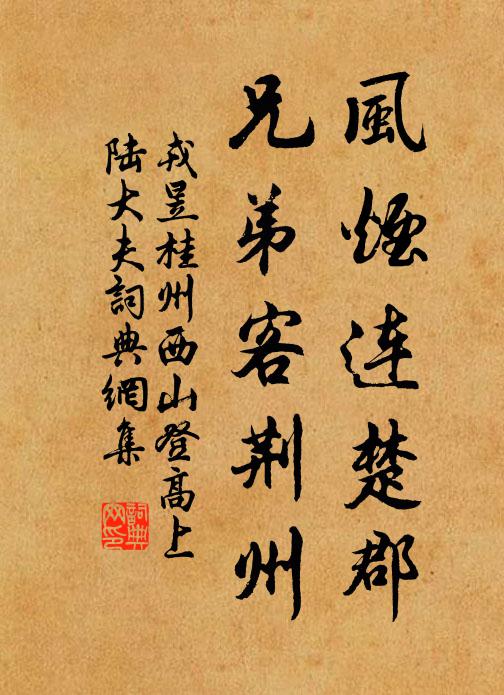 風煙连楚郡
兄弟客荆州
戎昱桂州西山登高上
陆大夫詞典網集
詞典
网印